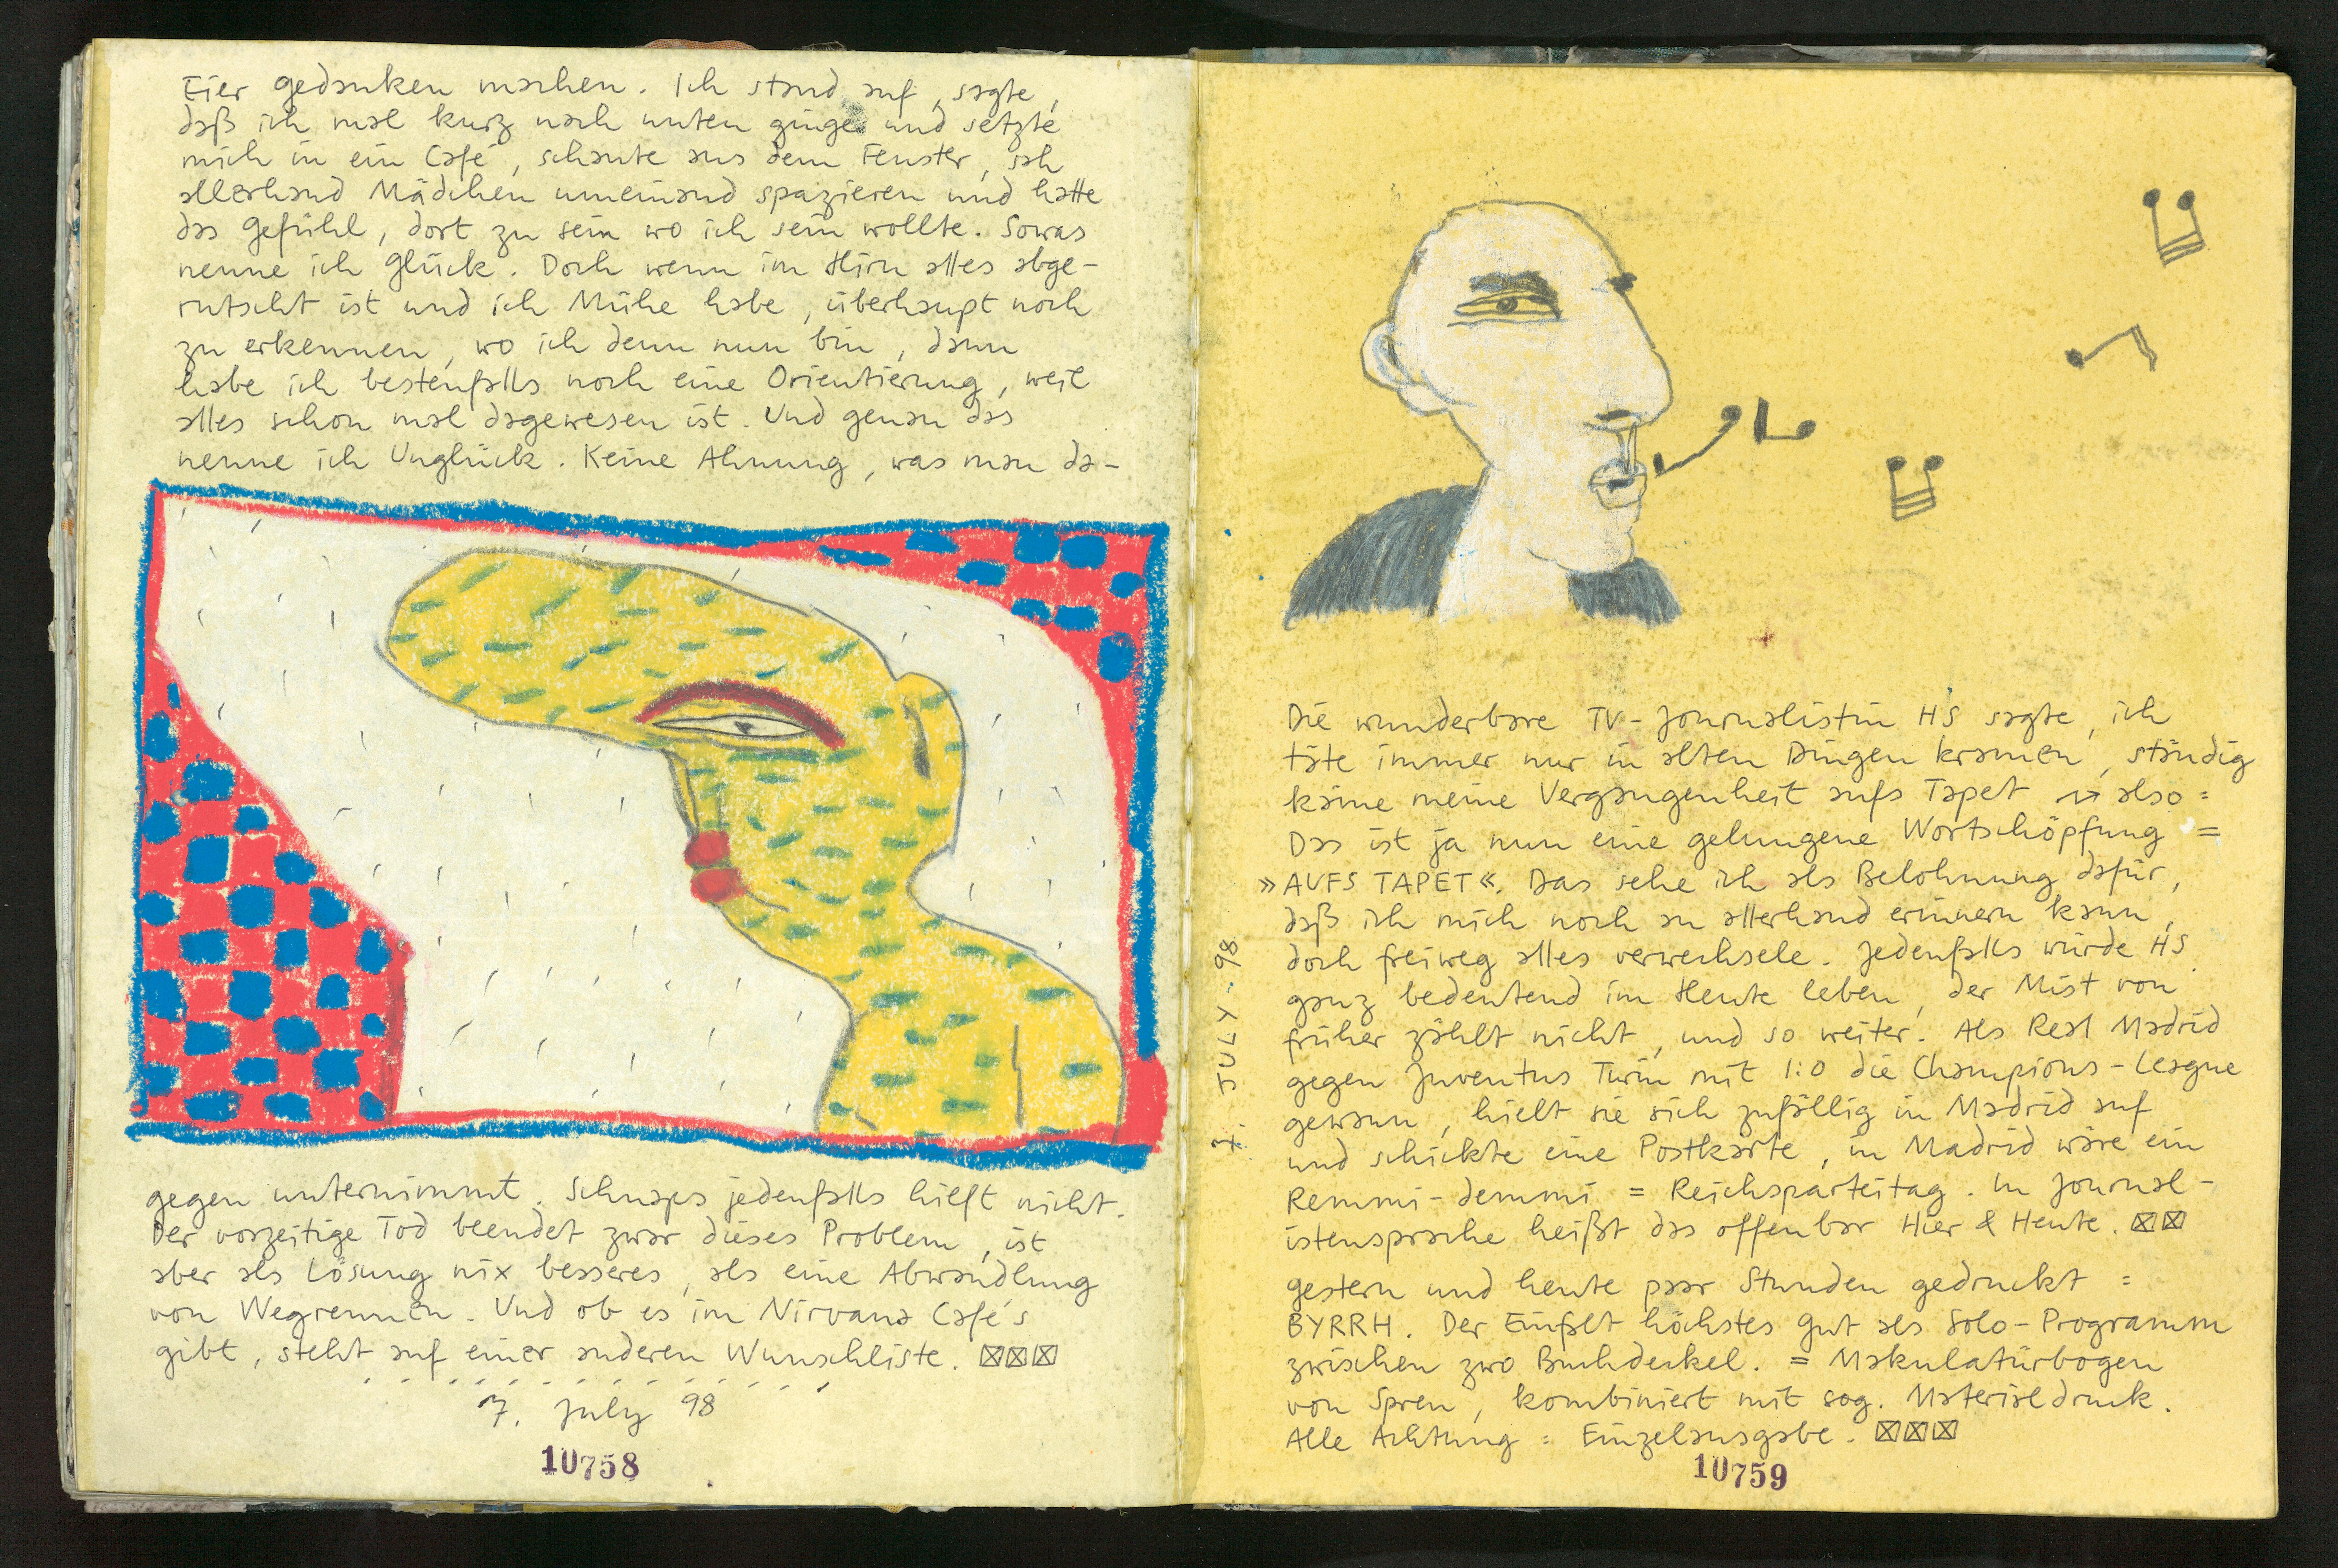 Eier gedanken machen. Ich stand auf, sagte,
daß ich mal kurz nach unten ginge und setzte
mich in ein Café, schaute aus dem Fenster, sah
allerhand Mädchen umeinand spazieren und hatte
das Gefühl, dort zu sein wo ich sein wollte. Sowas
nenne ich Glück. Doch wenn im Hirn alles abge-
rutscht ist und ich Mühe habe, überhaupt noch
zu erkennen, wo ich denn nun bin, dann
habe ich bestenfalls noch eine Orientierung, weil
alles schon mal dagewesen ist. Und genau das
nenne ich Unglück. Keine Ahnung, was man da-
gegen unternimmt. Schnaps jedenfalls hilft nicht.
Der vorzeitige Tod beendet zwar dieses Problem, ist
aber als Lösung nix besseres, als eine Abwandlung
von Wegrennen. Und ob es im Nirvana Café's
gibt, steht auf einer anderen Wunschliste. ☒☒☒
7. July 98
10758
7. JULY - 98
Die wunderbare TV-Journalistin HS sagte, ich
täte immer nur in alten Dingen kramen, ständig
käme meine Vergangenheit aufs Tapet → also:
Das ist ja nun eine gelungene Wortschöpfung =
»AUFS TAPET«. Das sehe ich als Belohnung dafür,
daß ich mich noch an allerhand erinnern kann,
doch freiweg alles verwechsele. Jedenfalls würde HS
ganz bedeutend im Heute leben, der Mist von
früher zählt nicht, und so weiter. Als Real Madrid
gegen Juventus Turin mit 1:0 die Champions-League
gewann, hielt sie sich zufällig in Madrid auf
und schickte eine Postkarte, in Madrid wäre ein
Remmi-demmi = Reichsparteitag. In Journal-
istensprache heißt das offenbar Hier & Heute. ☒☒
gestern und heute paar Stunden gedruckt =
BYRRH. Der Einfalt höchstes Gut als Solo-Programm
zwischen zwo Buchdeckel. = Makulaturbogen
von Spreu, kombiniert mit sog. Materialdruck.
Alle Achtung: Einzelausgabe. ☒☒☒
10759